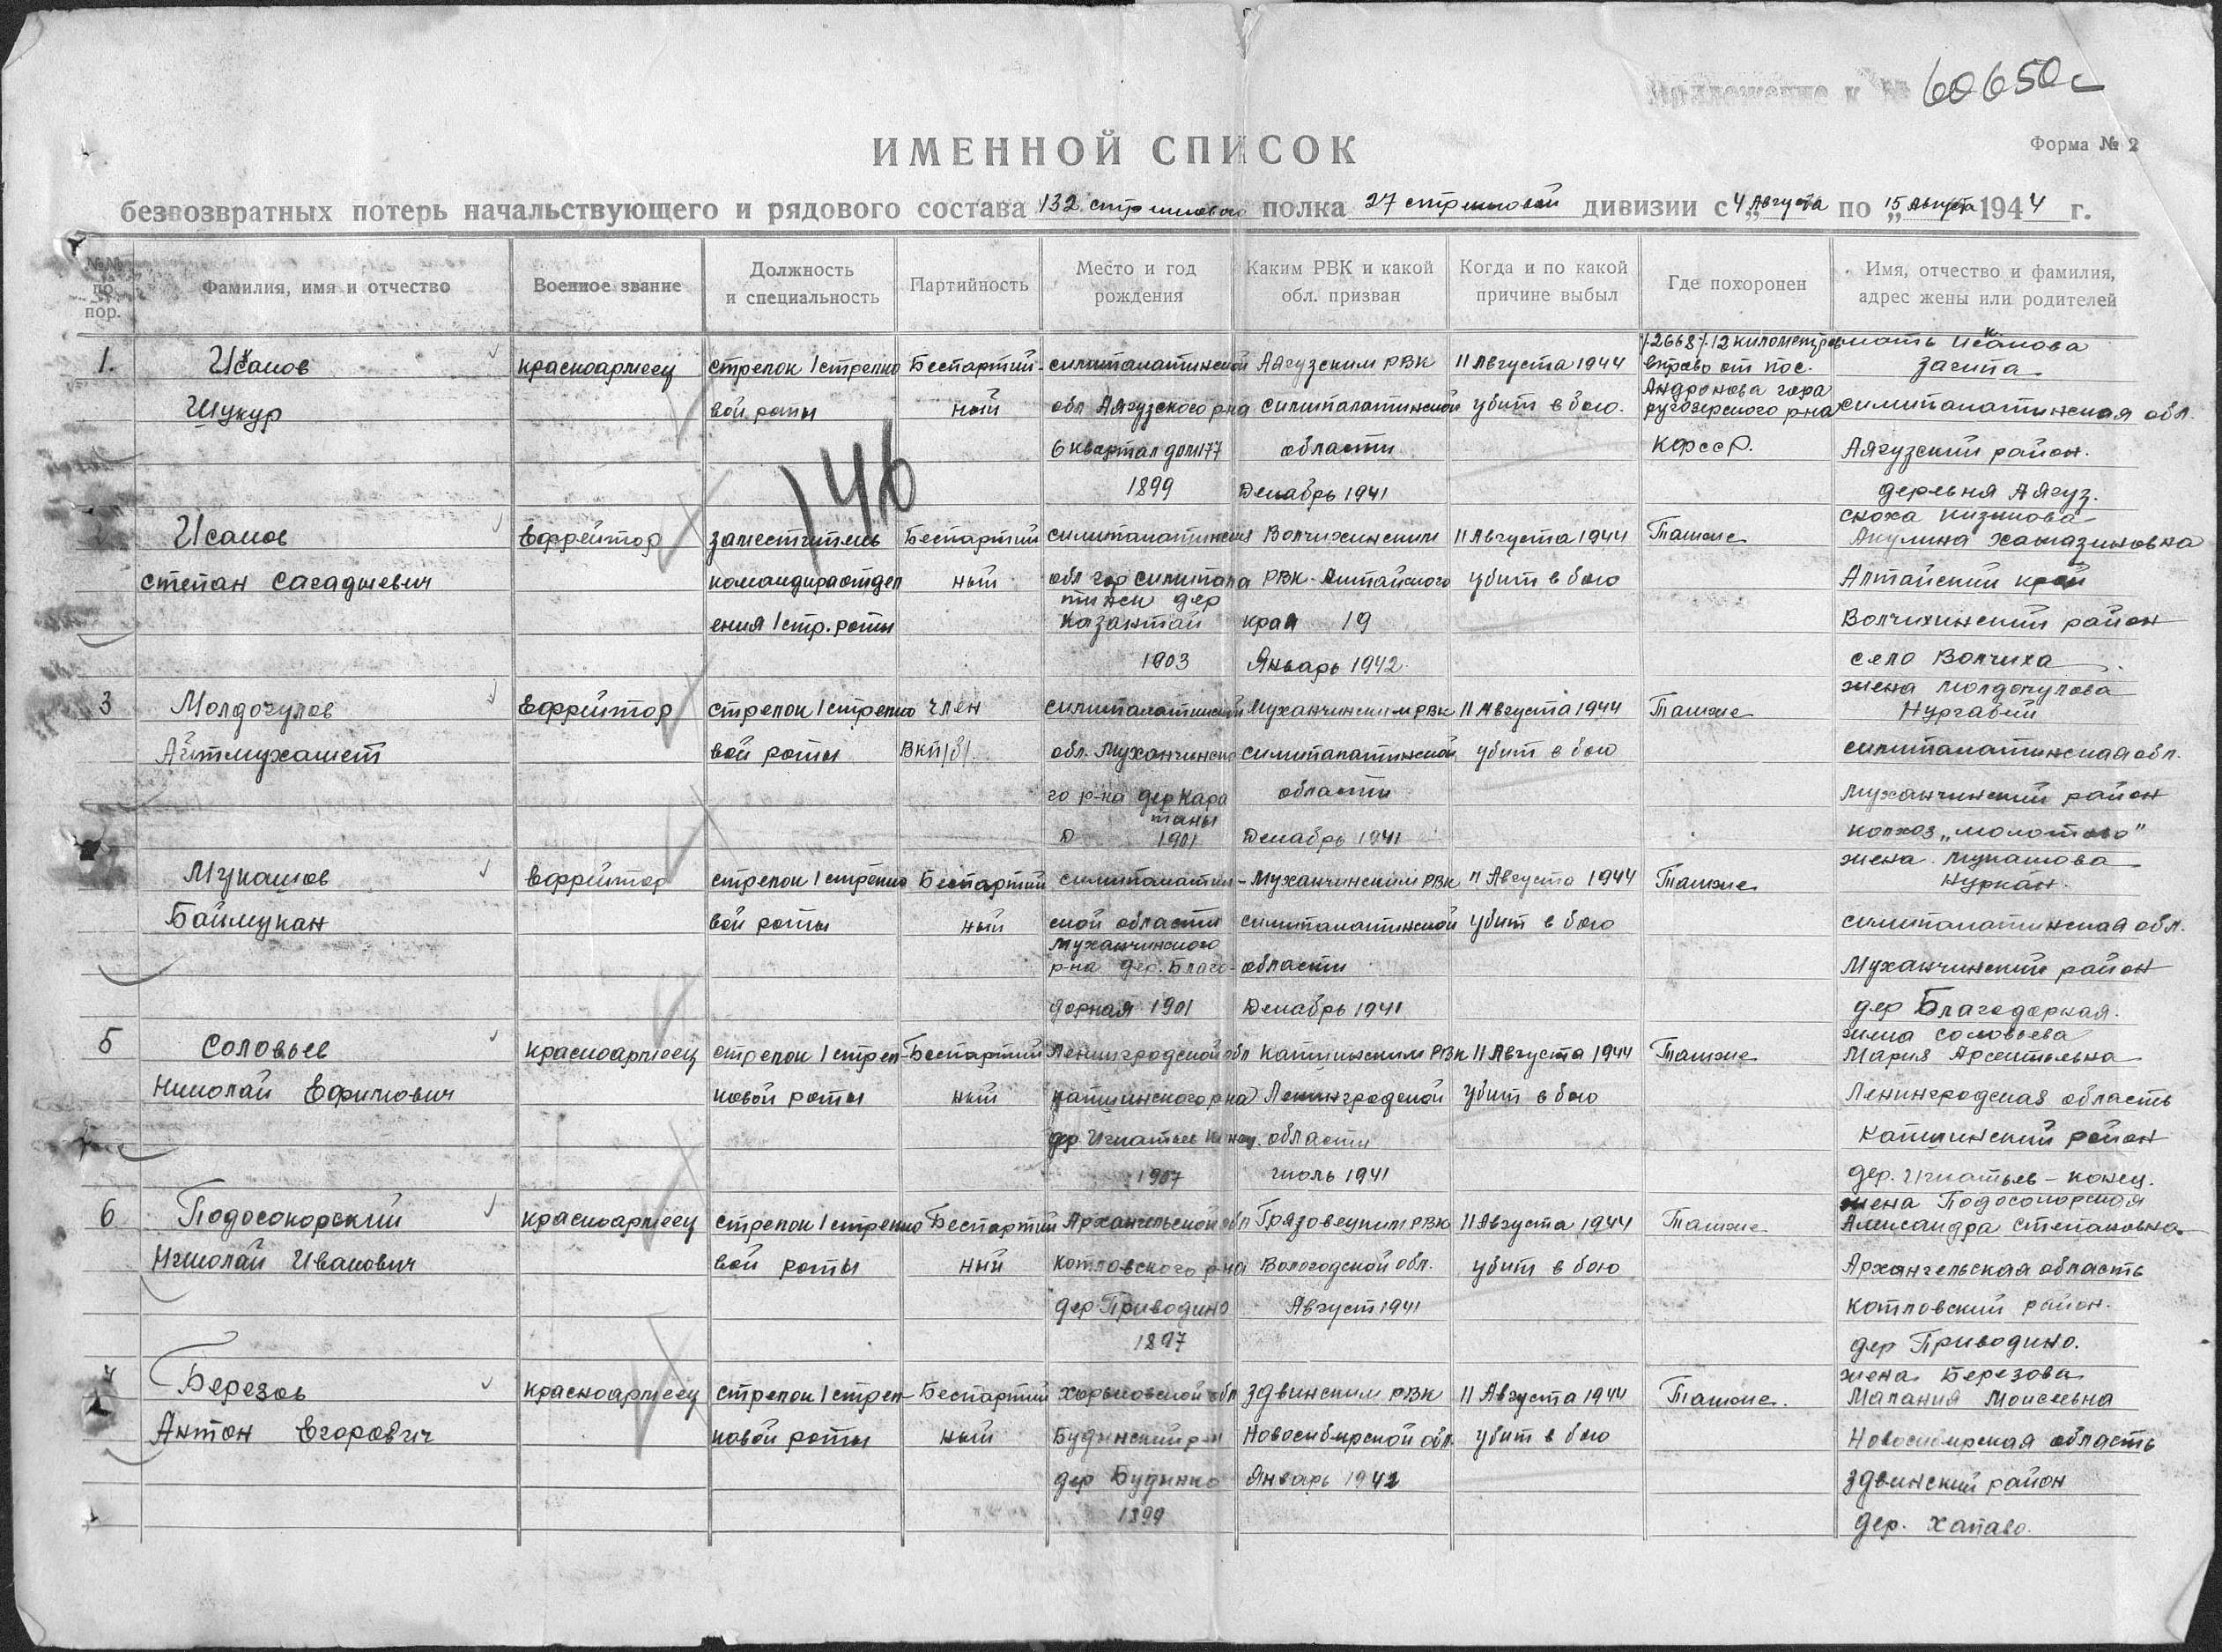 Приложение к № 60650с
ИМЕННОЙ СПИСОК
Форма № 2
безвозвратных потерь начальствующего и рядового состава 132 стрелкового полка 27 стрелковой дивизии с „4 Августа по „15 Августа 1944 г.
№№ по пор. Фамилия, имя и отчество Военное звание Должность и специальность Партийность Место и год рождения Каким РВК и какой обл. призван Когда и по какой причине выбыл Где похоронен Имя, отчество и фамилия, адрес жены или родителей
/2668/ 12 километров мать Исанова
1. Исанов красноармеец стрелок 1 стрелко Беспартий- семипалатинской Аягузским РВК 11 Августа 1944 вправо от пос. Загипа
Андронова гора
Шукур вой роты ный обл Аягузского р-на семипалатинской убит в бою. ругозерского р-на семипалатинская обл.
6 квартал дом 177 области КФССР. Аягузский район.
146
1899 Декабрь 1941 деревня Аягуз.
сноха
Исанов Ефрейтор заместитель Беспартий семипалатинской Волчихинским 11 Августа 1944 Также Акулина
степан командира отдел ный обл гор семипала РВК Алтайского убит в бою Алтайский край
тинск дер
ения 1 стр. роты Казантай края 19 Волчихинский район
1903 Январь 1942. село Волчиха
жена Молдогулова
3 Молдогулов Ефрейтор стрелок 1 стрелко член семипалатинской Муханчинским РВК 11 Августа 1944 Также
Айтмухамет вой роты ВКП/б/. обл. Муханчинско семипалатинской убит в бою семипалатинская обл.
го р-на дер Кара области Муханчинский район
таны
1901 Декабрь 1941 колхоз „молотова"
жена Мукашова
Мукашов Ефрейтор стрелок 1 стрелко Беспартий семипалатин- Муханчинским РВК 11 Августа 1944 Также Нуркан.
Баймукан вой роты ный ской области семипалатинской убит в бою семипалатинская обл.
Муханчинского
р-на дер. Благо- области Муханчинский район
дарная 1901 Декабрь 1941 дер Благодарная.
жена соловьева
5 Соловьев красноармеец стрелок 1 стрел- Беспартий Ленинградской обл Капшинским РВК 11 Августа 1944 Также Мария Арсентьевна
Николай Ефимович ковой роты ный капшинского р-на Ленинградской убит в бою Ленинградская область
дер Игнатьев конец. области Капшинский район
1907 июль 1941 дер. Игнатьев - конец.
жена Подосокорская
6 Подосокорский красноармеец стрелок 1 стрелко Беспартий Архангельской обл Грязовецким РВК 11 Августа 1944 Также Александра степановна
Николай Иванович вой роты ный Котловского р-на Вологодской обл. убит в бою Архангельская область
дер Приводино Август 1941 Котловский район.
1897 дер Приводино.
жена Березова
Березов красноармеец стрелок 1 стрел- Беспартий харьковской обл здвинским РВК 11 Августа 1944 Также. Малания Моисеевна
Антон Егорович ковой роты ный Новосибирской обл. убит в бою Новосибирская область
дер Январь 1942 здвинский район
1899 дер.